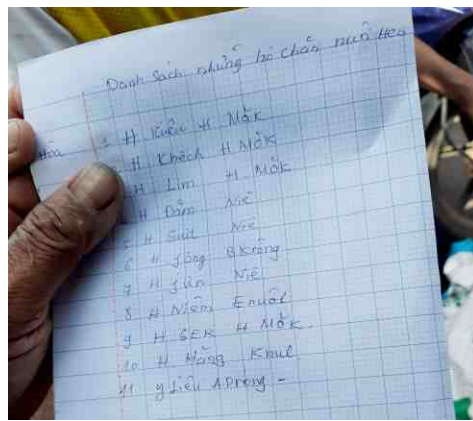 Danh Sách những hộ chăn nuôi Heo
Hòa
1 H Kiều H Mŏk
H Khêch H Mŏk
H Lim H Mŏk
H Dăm Niê
5 H Guit Niê
6 H Jông Bkrông
7 H Jún Niê
8 H Niêm Enuôl
9 H GER H Mŏk
10 H Hăng Knul
11 y Liêu Aprong -